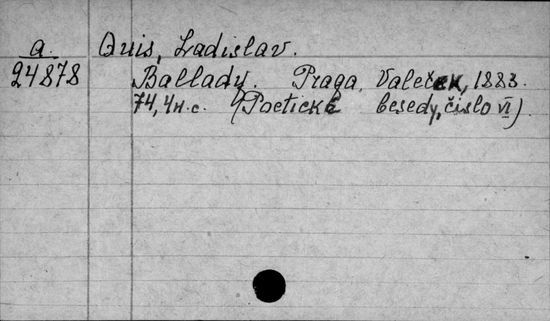 a. Quis, Ladislav.
24878 Ballady. Praga, Valeček, 1883.
74, 4н.с. (Poetické besedy, čislo VI).